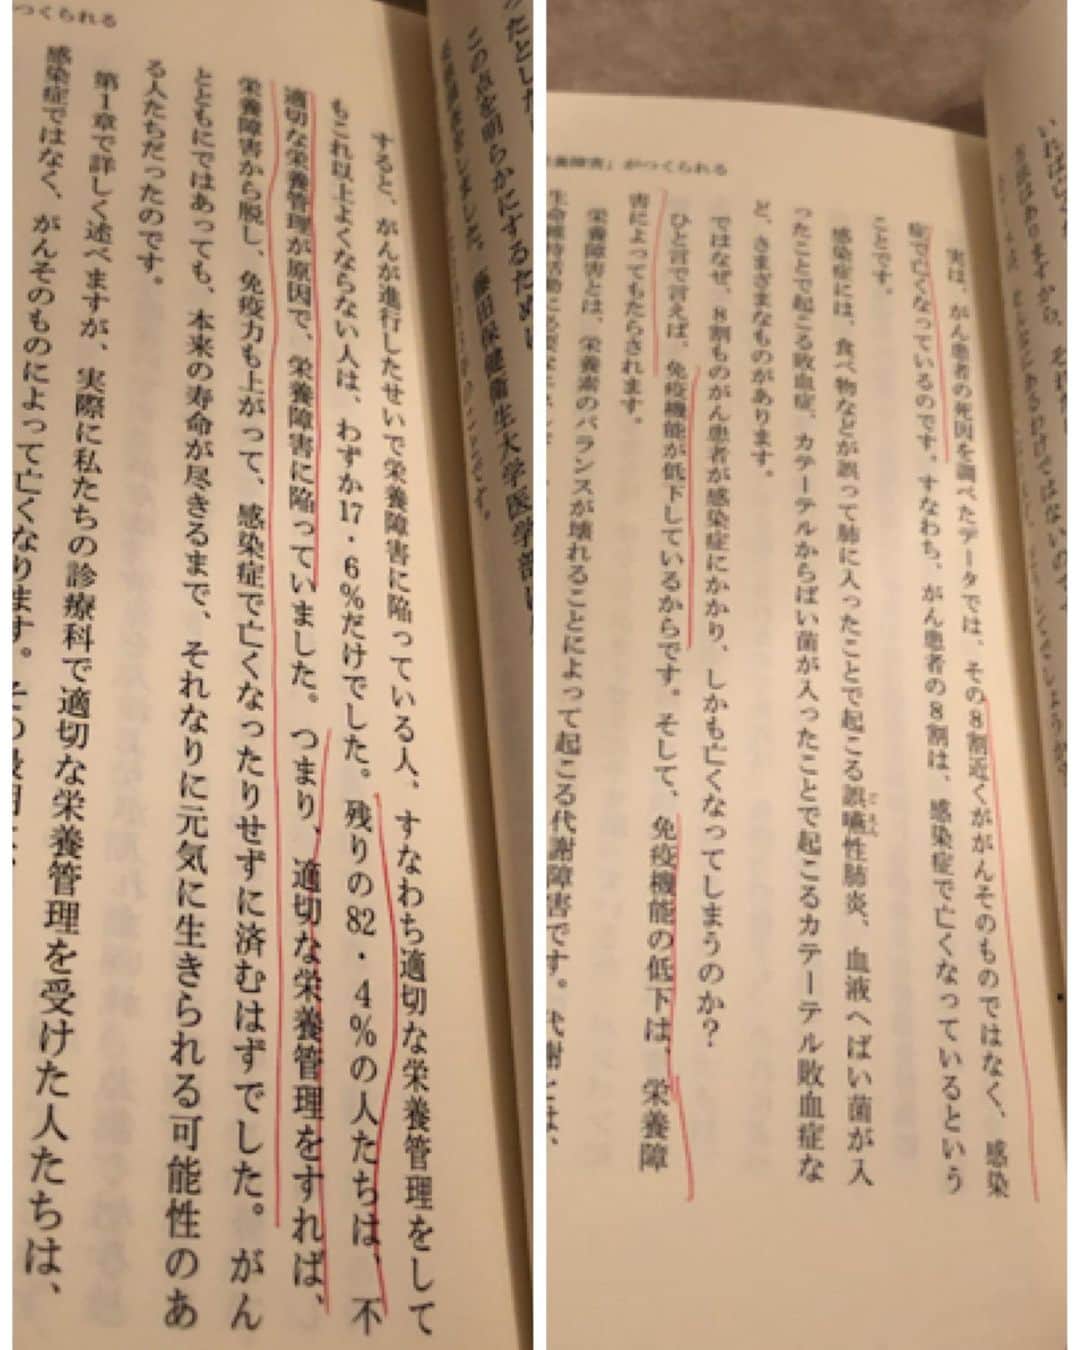 養障害」がつくられる
実は、がん患者の死因を調べたデータでは、その8割近くががんそのものではなく、感染
症で亡くなっているのです。すなわち、がん患者の8割は、感染症で亡くなっているという
ことです。
感染症には、食べ物などが誤って肺に入ったことで起こる誤嚥性肺炎、血液へばい菌が入
ったことで起こる敗血症、カテーテルからばい菌が入ったことで起こるカテーテル敗血症な
ど、さまざまなものがあります。
ではなぜ、8割ものがん患者が感染症にかかり、しかも亡くなってしまうのか?
ひと言で言えば、免疫機能が低下しているからです。そして、免疫機能の低下は、栄養障
害によってもたらされます。
栄養障害とは、栄養素のバランスが壊れることによって起こる代謝障害です。代謝とは、
生命維持活動に必要な
つくられる
かたとした
この点を明らかにするため、
藤田保健衛生大学医学部
すると、がんが進行したせいで栄養障害に陥っている人、すなわち適切な栄養管理をして
もこれ以上よくならない人は、わずか17・6%だけでした。残りの82・4%の人たちは、不
適切な栄養管理が原因で、栄養障害に陥っていました。つまり、適切な栄養管理をすれば、
栄養障害から脱し、免疫力も上がって、感染症で亡くなったりせずに済むはずでした。がん
とともにではあっても、本来の寿命が尽きるまで、それなりに元気に生きられる可能性のあ
る人たちだったのです。
第1章で詳しく述べますが、実際に私たちの診療科で適切な栄養管理を受けた人たちは、
感染症ではなく、がんそのものによって亡くなります。その